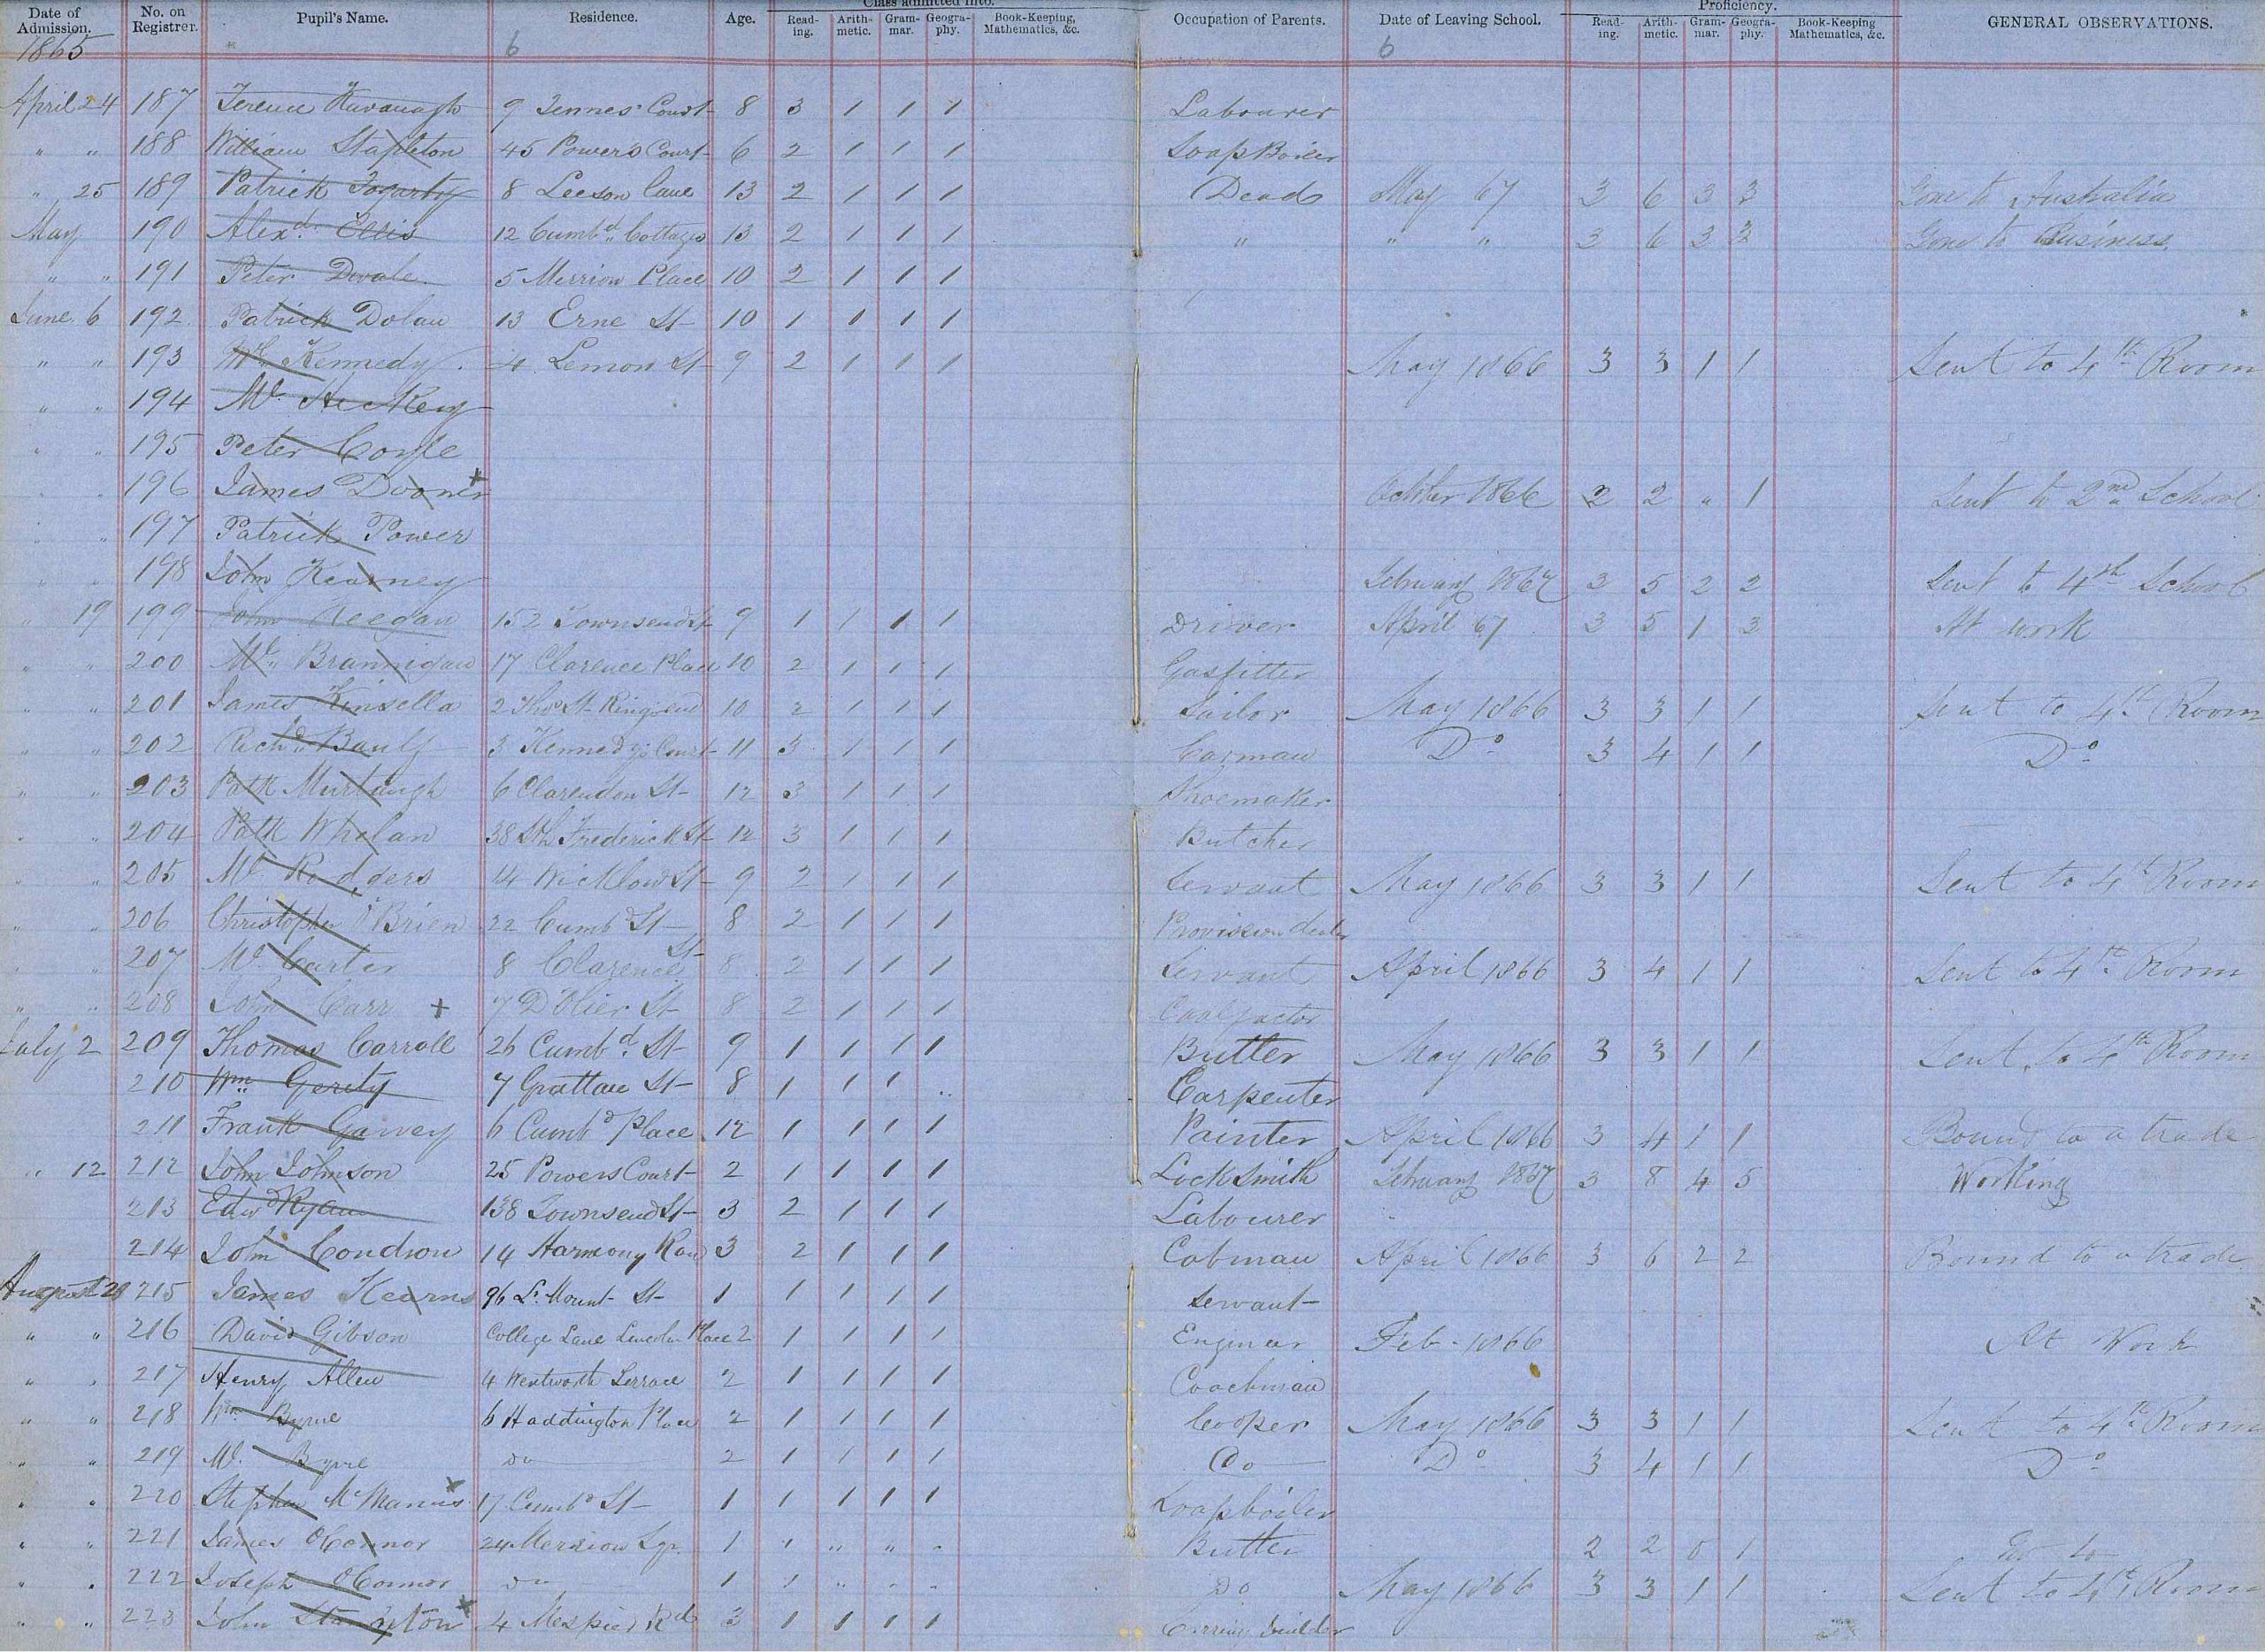 Date of Admission. No. on Registrer. Pupil's Name. Residence. Age. Class admitted into. Reading. Arithmetic. Grammar. Geography. Book-Keeping, Mathematics, &c. Occupation of Parents. Date of Leaving School. Proficiency. Reading. Arithmetic. Grammar. Geography. Book-Keeping Mathematics, &c. GENERAL OBSERVATIONS.
1865 6 6
April 24 187 Terence Kavanagh 9 Court 8 3 1 1 1 Labourer
" " 188 William Stapleton 45 Powers Court 6 2 1 1 1 Soap Boiler
" 25 189 Patrick Fogarty 8 Leeson lane 13 2 1 1 1 Dead May 67 3 6 3 3 Gone to Australia
May 190 Alexd. Ellis 12 Cumbd. Cottages 13 2 1 1 1 " " " 3 6 3 3 Gone to Business
" " 191 Peter 5 Merrion Place 10 2 1 1 1
June 6 192 Patrick Dolan 13 Erne St 10 1 1 1 1
" " 193 Kennedy 4 Lemon St 9 2 1 1 1 May 1866 3 3 1 1 Sent to 4th Room
" " 194 Hickey
" " 195 Peter Coyle
" " 196 James Dooner + October 1866 2 2 " 1 Sent to 2nd School
" " 197 Patrick Power
" " 198 John Kearney February 1867 3 5 2 2 Sent to 4th School
" 19 199 John Keegan 152 Townsend St 9 1 1 1 1 Driver April 67 3 5 1 3 At work
" " 200 Brannigan 17 Clarence Place 10 2 1 1 1 Gasfitter
" " 201 James Kinsella 2 Thos St Ringsend 10 2 1 1 1 Sailor May 1866 3 3 1 1 Sent to 4th Room
" " 202 Richd. 3 Kennedy's Court 11 3 1 1 1 Carman Do 3 4 1 1 Do
" " 203 Patk Murtaugh 6 Clarendon St 12 3 1 1 1 Shoemaker
" " 204 Patk Whelan 38 Sth Frederick St 12 3 1 1 1 Butcher
" " 205 Rodgers 14 Wicklow St 9 2 1 1 1 Servant May 1866 3 3 1 1 Sent to 4th Room
" " 206 Christopher O'Brien 22 Cumbd St 8 2 1 1 1 Provision dealer
" " 207 Carter 8 Clarence St 8 2 1 1 1 Servant April 1866 3 4 1 1 Sent to 4th Room
" " 208 John Carr + 7 D'Olier St 8 2 1 1 1 Coalfactor
July 2 209 Thomas Carroll 26 Cumbd. St 9 1 1 1 1 Butler May 1866 3 3 1 1 Sent to 4th Room
210 Wm. Gerity 7 Grattan St 8 1 1 1 " Carpenter
211 Frank Garvey 6 Cumbd Place 12 1 1 1 1 Painter April 1866 3 4 1 1 Bound to a trade
" 12 212 John Johnson 25 Powers Court 2 1 1 1 1 Locksmith February 1867 3 8 4 5 Working
213 Edwd Ryan 138 Townsend St 3 2 1 1 1 Labourer
214 John Condron 14 Harmony Row 3 2 1 1 1 Cabman April 1866 3 6 2 2 Bound to a trade
August 215 James Kearns 96 Lr. Mount St 1 1 1 1 1 Servant
" " 216 David Gibson College Lane Lincoln Place 2 1 1 1 1 Engineer Feb 1866 At Work
" " 217 Henry Allen 4 Wentworth Terrace 2 1 1 1 1 Coachman
" " 218 Wm. Byrne 6 Haddington Place 2 1 1 1 1 Cooper May 1866 3 3 1 1 Sent to 4th Room
" " 219 Byrne do 2 1 1 1 1 Do Do 3 4 1 1 Do
" " 220 Stephen McManus x 17 Cumbd St 1 1 1 1 1 Soapboiler
" " 221 James O'Connor 24 Merrion Sqr. 1 1 " " " Butler 2 2 0 1
" " 222 Joseph O'Connor do 1 1 " " " Do May 1866 3 3 1 1 Sent to 4th Room
" " 223 John x 4 Mespil Rd 3 1 1 1 1 builder